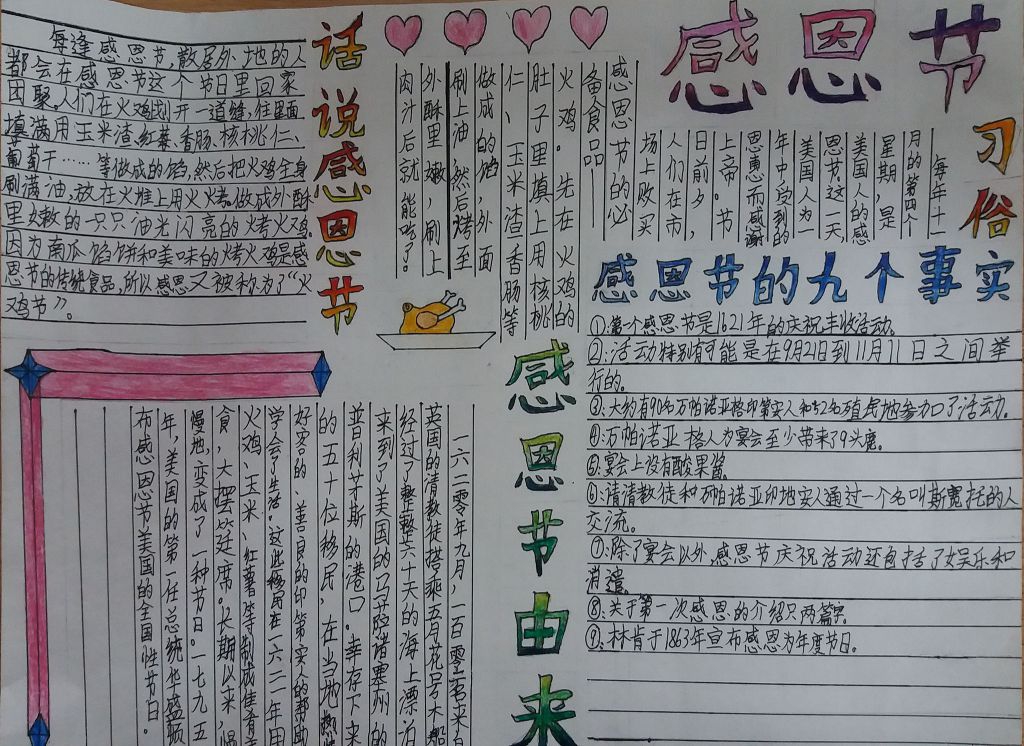 感恩节
话说感恩节
每逢感恩节,散居外地的人
都会在感恩节这个节日里回家
团聚,人们在火鸡划开一道缝,往里面
填满用玉米渣、红薯、香肠、核桃仁、
葡萄干……等做成的馅,然后把火鸡全身
刷满油,放在火堆上用火烤。做成外酥
里嫩的一只只油光闪亮的烤火鸡。
因为南瓜馅饼和美味的烤火鸡是感
恩节的传统食品,所以感恩又被称为了“火
鸡节”。
习俗
每年十一
月的第四个
星期,是
美国人的感
恩节。这一天
美国人为一
年中受到的
恩惠而感谢
上帝。节
日前夕,
人们在市
场上购买
感恩节的必
备食品——
火鸡。先在火鸡的
肚子里填上用核桃
仁、玉米渣香肠等
做成的馅,外面
刷上油,然后烤至
外酥里嫩,刷上
肉汁后就能吃了。
感恩节的九个事实
①:第一个感恩节是1621年的庆祝丰收活动。
②:活动特别有可能是在9月21日到11月11日之间举
行的。
③:大约有90名万帕诺亚格印第安人和52名殖民地参加了活动。
④:万帕诺亚格人为宴会至少带来了9头鹿。
⑤:宴会上没有酸果酱。
⑥:清清教徒和万帕诺亚印地安人通过一个名叫斯宽托的人
交流。
⑦:除了宴会以外,感恩节庆祝活动还包括了娱乐和
消遣。
⑧:关于第一次感恩的介绍只两篇
⑨:林肯于1863年宣布感恩为年度节日。
感恩节由来
一六二零年九月,一百零二名来自
英国的清教徒搭乘五月花号木船
经过了整整六十天的海上漂泊
来到了美国的马萨诸塞州的
普利茅斯的港口。幸存下来
的五十位移民,在当地
好客的、善良的印第安人的帮助
学会了生活。这些移民在一六二一年用
火鸡、玉米、红薯等制成佳肴
食,大摆筵席。长期以来,慢
慢地,变成了一种节日。一七九五
年,美国的第一任总统华盛顿
布感恩节美国的全国性节日。